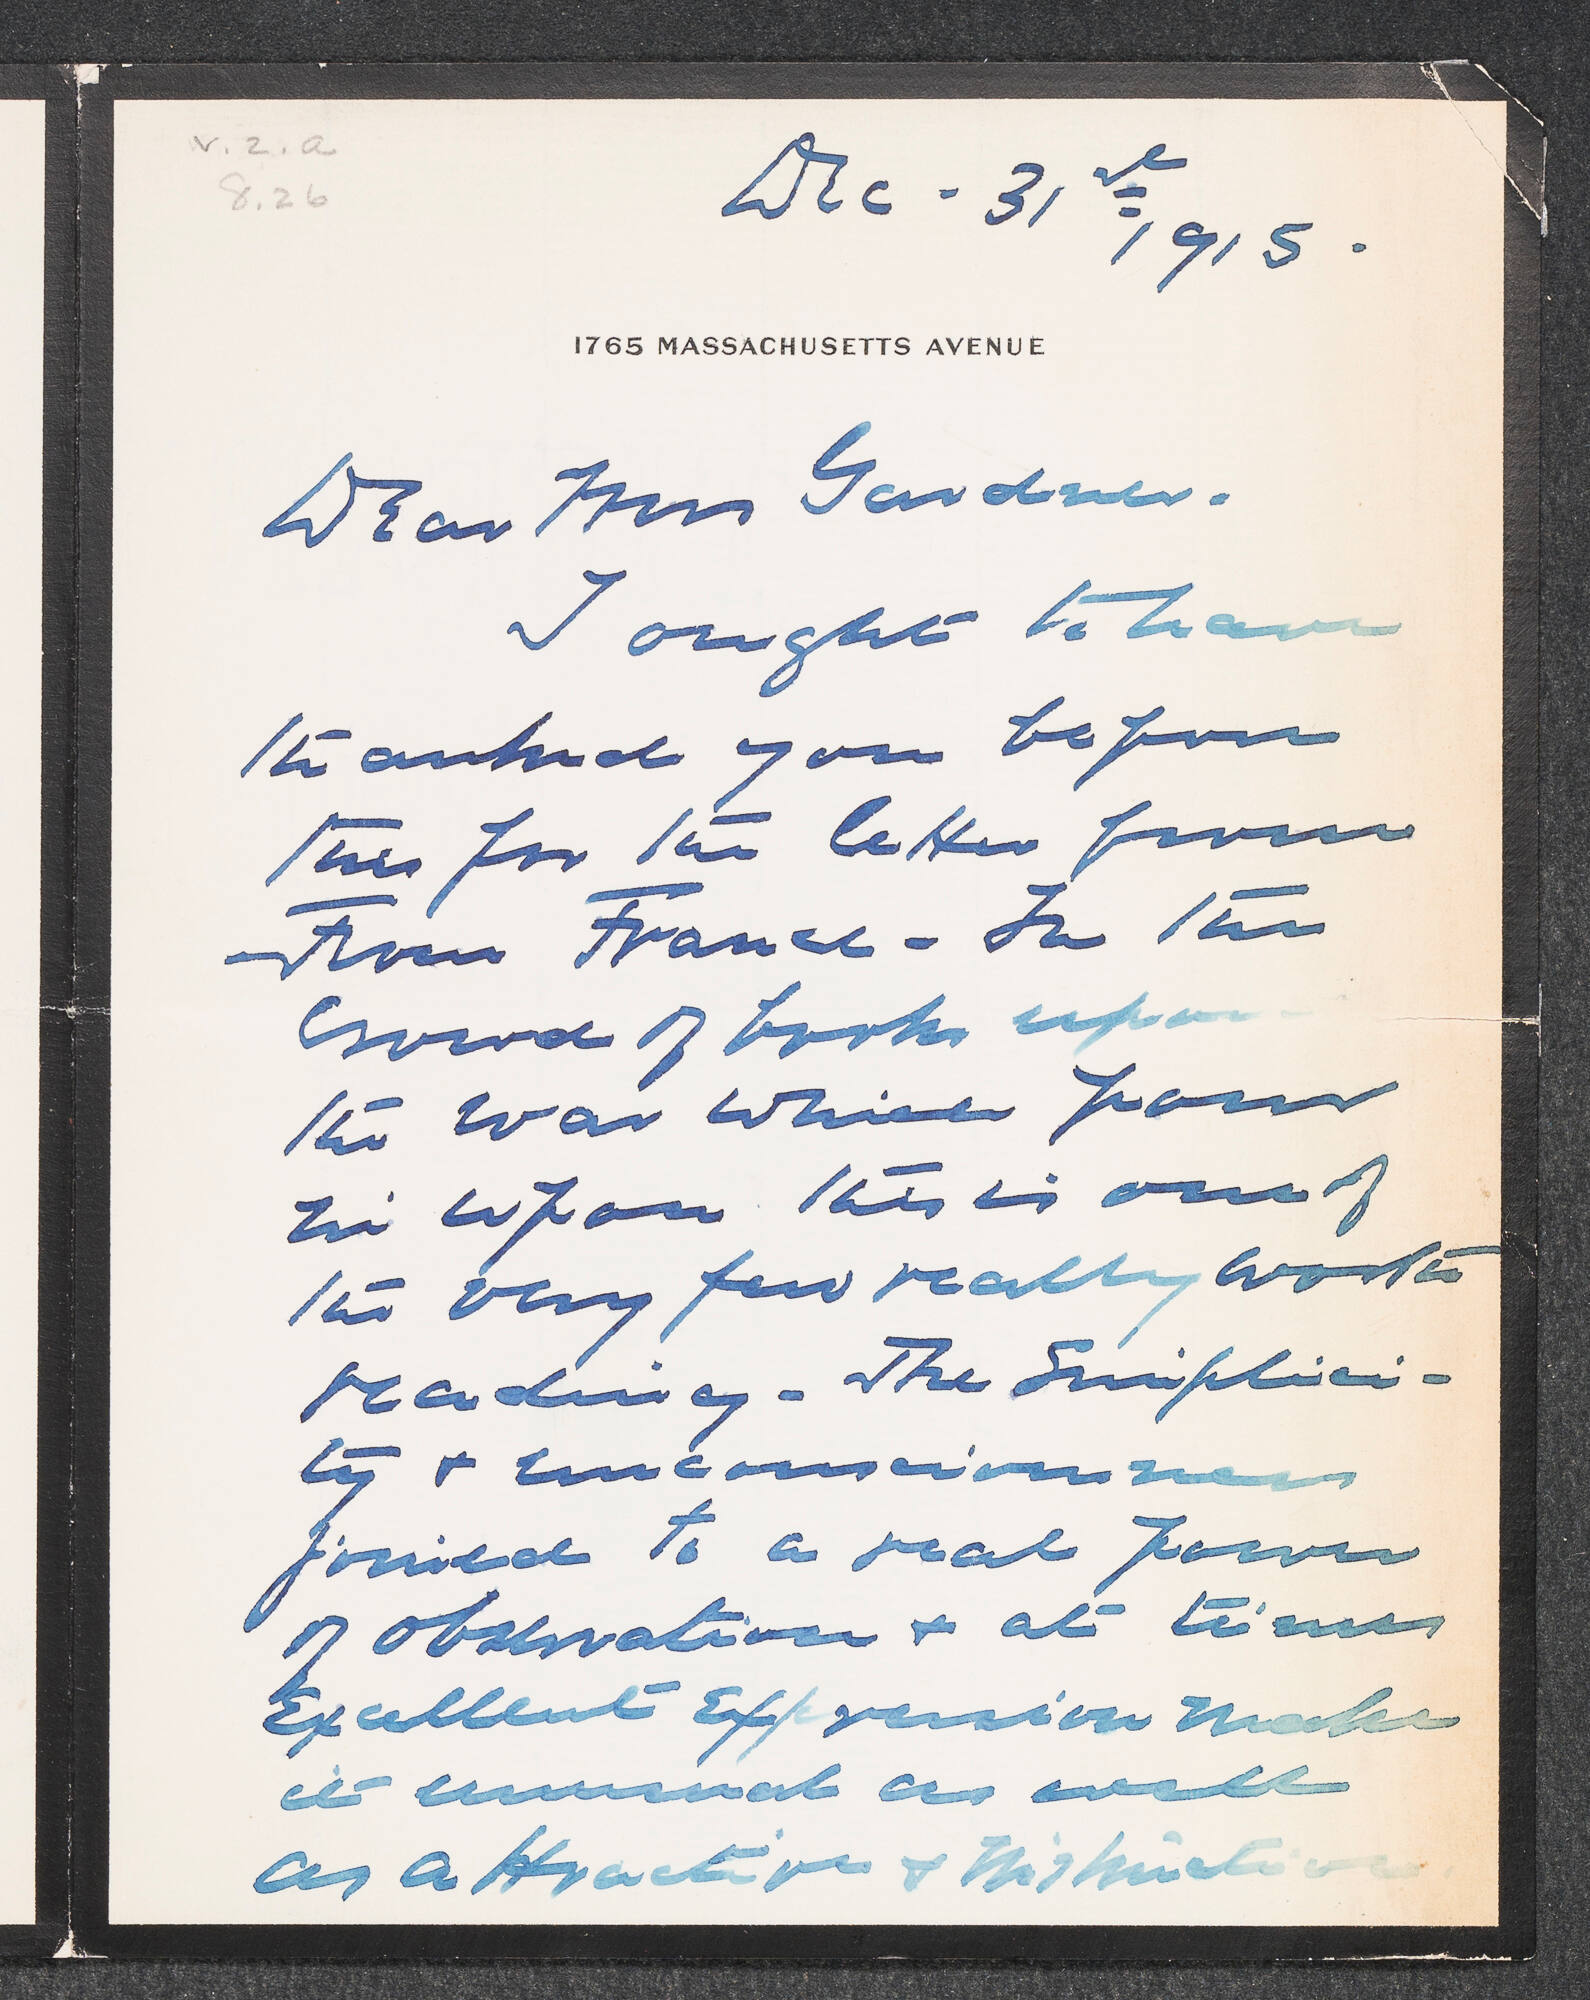 v.2.a
8.26
Dec - 31st
1915.
1765 MASSACHUSETTS AVENUE
Dear Mrs Gardner.
I ought to have
thanked you before
this for the letter from
From France - In the
crowd of books upon
the war which pour
in upon this is one of
the very few really worth
reading - The Simplici-
ty & unconsciousness
joined to a real power
of observation & at times
Excellent Expression make
it unusual as well
as attractive &